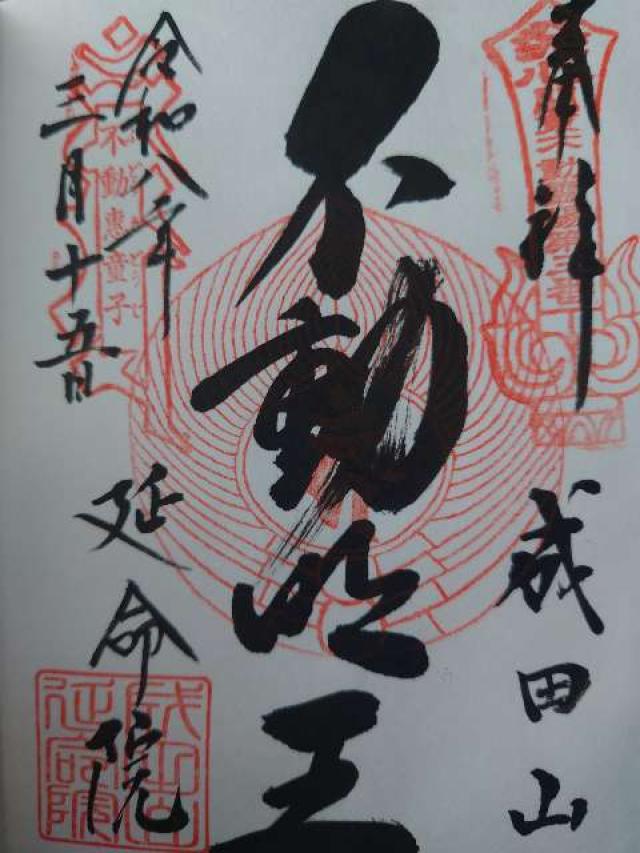 奉拝
成田山
不動明王
令和八年
三月十五日
不動恵童子
延命院